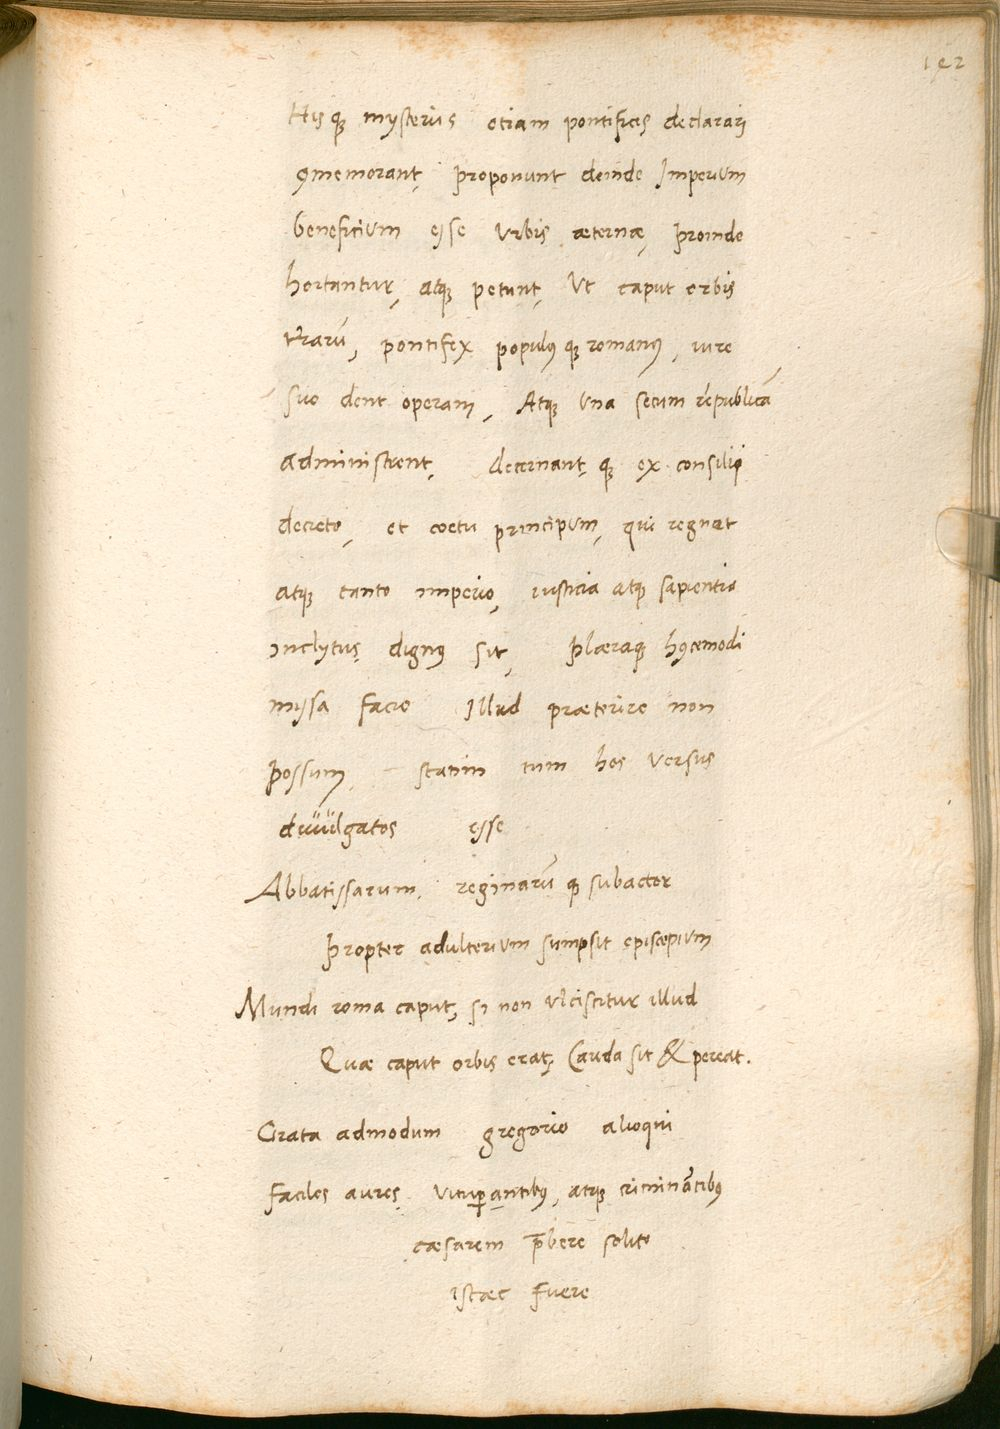 142
His q mysterijs etiam pontifices declarari
9memorant, proponunt deinde Imperium
beneficium esse urbis æternæ, proinde
hortantur, atq petunt, Ut caput orbis
t'rarū, pontifex populus q romanus, iure
suo dent operam, Atq una secum rēpublicā
administrent, decernant, q ex consilij
decreto, et coetu principum, qui regnat
atq tanto imperio, iusticia atq sapientia
inclytus, dignus sit, Plæraq hucemodi
missa facio Illud præterire non
possum, statim tum hos versus
divulgatos esse
Abbatissarum, reginarū q subactor
Propter adulterium sumpsit episcopium
Mundi roma caput, si non ulciscitur illud
Quæ caput orbis erat, Cauda sit & pereat.
Grata admodum gregorio alioqui
faciles aures, vitupantibus, atq criminātibus
cæsarem p̄bere solito
istæc fuere